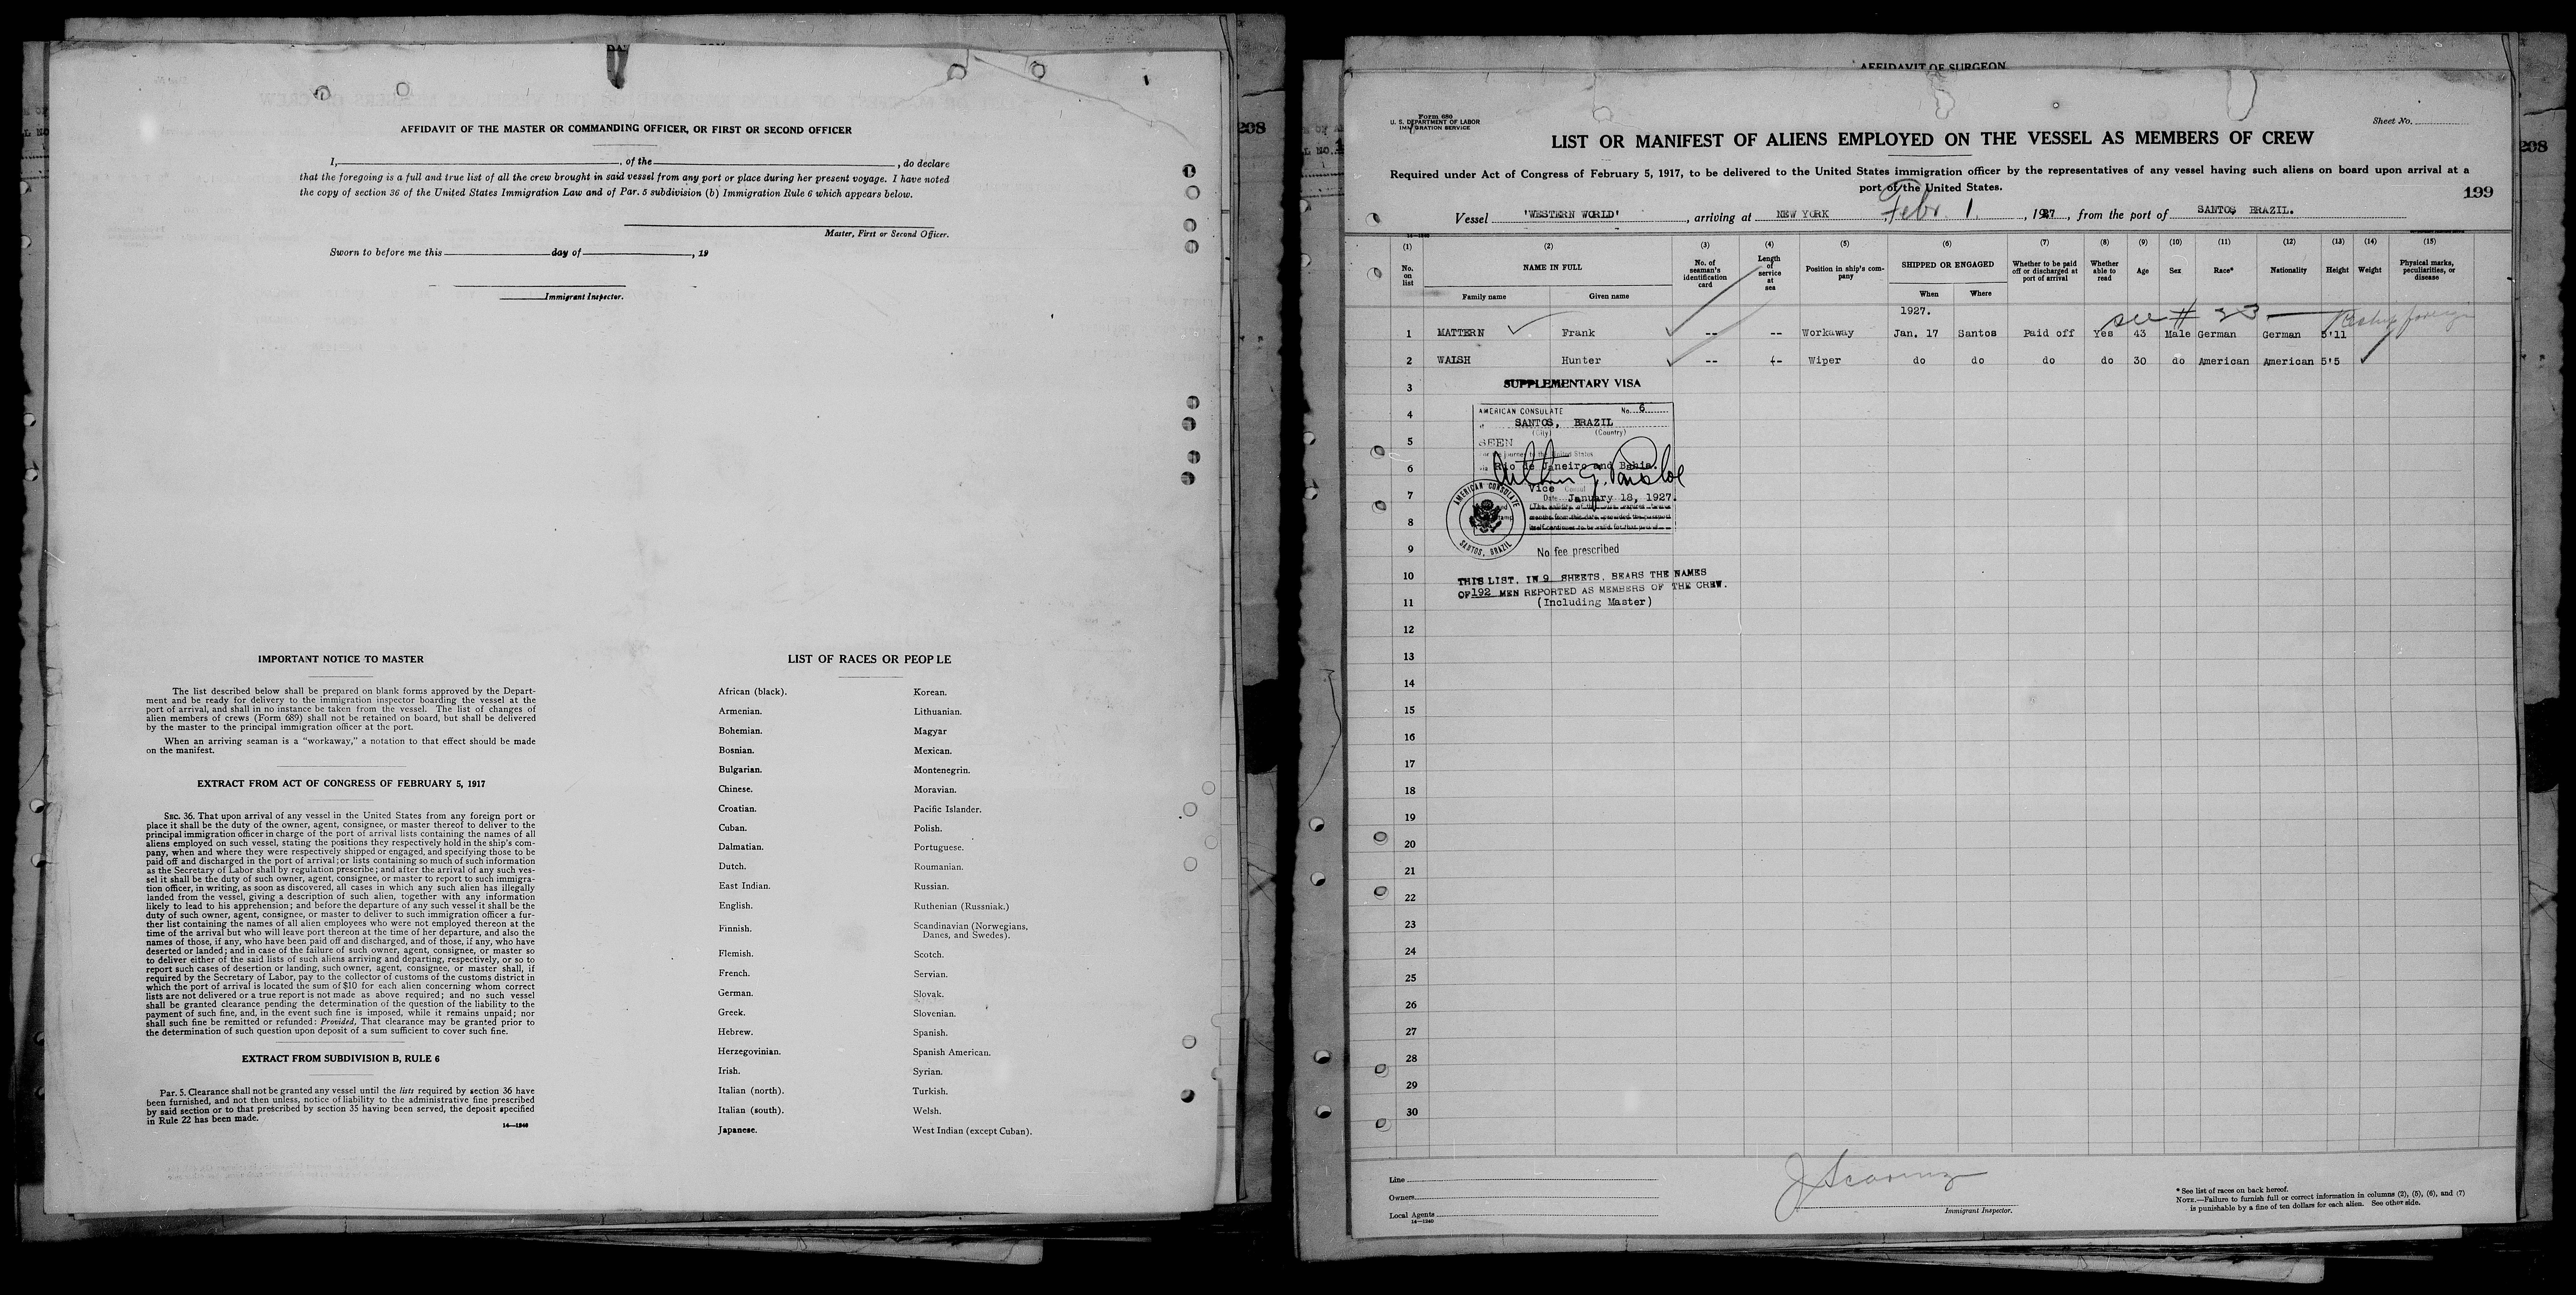 AFFIDAVIT OF THE MASTER OR COMMANDING OFFICER, OR FIRST OR SECOND OFFICER
I, , of the , do declare
that the foregoing is a full and true list of all the crew brought in said vessel from any port or place during her present voyage. I have noted
the copy of section 36 of the United States Immigration Law and of Par. 5 subdivision (b) Immigration Rule 6 which appears below.
Master, First or Second Officer.
Sworn to before me this day of , 19
Immigrant Inspector.
IMPORTANT NOTICE TO MASTER
The list described below shall be prepared on blank forms approved by the Depart-
ment and be ready for delivery to the immigration inspector boarding the vessel at the
port of arrival, and shall in no instance be taken from the vessel. The list of changes of
alien members of crews (Form 689) shall not be retained on board, but shall be delivered
by the master to the principal immigration officer at the port.
When an arriving seaman is a "workaway," a notation to that effect should be made
on the manifest.
EXTRACT FROM ACT OF CONGRESS OF FEBRUARY 5, 1917
SEC. 36. That upon arrival of any vessel in the United States from any foreign port or
place it shall be the duty of the owner, agent, consignee, or master thereof to deliver to the
principal immigration officer in charge of the port of arrival lists containing the names of all
aliens employed on such vessel, stating the positions they respectively hold in the ship's com-
pany, when and where they were respectively shipped or engaged, and specifying those to be
paid off and discharged in the port of arrival; or lists containing so much of such information
as the Secretary of Labor shall by regulation prescribe; and after the arrival of any such ves-
sel it shall be the duty of such owner, agent, consignee, or master to report to such immigra-
tion officer, in writing, as soon as discovered, all cases in which any such alien has illegally
landed from the vessel, giving a description of such alien, together with any information
likely to lead to his apprehension; and before the departure of any such vessel it shall be the
duty of such owner, agent, consignee, or master to deliver to such immigration officer a fur-
ther list containing the names of all alien employees who were not employed thereon at the
time of the arrival but who will leave port thereon at the time of her departure, and also the
names of those, if any, who have been paid off and discharged, and of those, if any, who have
deserted or landed; and in case of the failure of such owner, agent, consignee, or master so
to deliver either of the said lists of such aliens arriving and departing, respectively, or so to
report such cases of desertion or landing, such owner, agent, consignee, or master shall, if
required by the Secretary of Labor, pay to the collector of customs of the customs district in
which the port of arrival is located the sum of $10 for each alien concerning whom correct
lists are not delivered or a true report is not made as above required; and no such vessel
shall be granted clearance pending the determination of the question of the liability to the
payment of such fine, and, in the event such fine is imposed, while it remains unpaid; nor
shall such fine be remitted or refunded: Provided, That clearance may be granted prior to
the determination of such question upon deposit of a sum sufficient to cover such fine.
EXTRACT FROM SUBDIVISION B, RULE 6
Par. 5. Clearance shall not be granted any vessel until the lists required by section 36 have
been furnished, and not then unless, notice of liability to the administrative fine prescribed
by said section or to that prescribed by section 35 having been served, the deposit specified
in Rule 22 has been made.
14—1240
LIST OF RACES OR PEOPLE
African (black). Korean.
Armenian. Lithuanian.
Bohemian. Magyar
Bosnian. Mexican.
Bulgarian. Montenegrin.
Chinese. Moravian.
Croatian. Pacific Islander.
Cuban. Polish.
Dalmatian. Portuguese.
Dutch. Roumanian.
East Indian. Russian.
English. Ruthenian (Russniak.)
Finnish. Scandinavian (Norwegians,
Danes, and Swedes).
Flemish. Scotch.
French. Servian.
German. Slovak.
Greek. Slovenian.
Hebrew. Spanish.
Herzegovinian. Spanish American.
Irish. Syrian.
Italian (north). Turkish.
Italian (south). Welsh.
Japanese. West Indian (except Cuban).
208
AFFIDAVIT OF SURGEON
Form 680
U. S. DEPARTMENT OF LABOR
IMMIGRATION SERVICE
Sheet No.
LIST OR MANIFEST OF ALIENS EMPLOYED ON THE VESSEL AS MEMBERS OF CREW
Required under Act of Congress of February 5, 1917, to be delivered to the United States immigration officer by the representatives of any vessel having such aliens on board upon arrival at a
port of the United States.
199
208
Vessel 'WESTERN WORLD' , arriving at NEW YORK , Febr. 1. , 1927 , from the port of SANTOS BRAZIL.
14—1240
(1) (2) (3) (4) (5) (6) (7) (8) (9) (10) (11) (12) (13) (14) (15)
No. on list NAME IN FULL No. of seaman's identification card Length of service at sea Position in ship's company SHIPPED OR ENGAGED Whether to be paid off or discharged at port of arrival Whether able to read Age Sex Race* Nationality Height Weight Physical marks, peculiarities, or disease
Family name Given name When Where
1927.
see # 23
1 MATTERN Frank -- -- Workaway Jan. 17 Santos Paid off Yes 43 Male German German 5'11
2 WALSH Hunter -- -- Wiper do do do do 30 do American American 5'5
3 SUPPLEMENTARY VISA
4 AMERICAN CONSULATE No. 6
SANTOS, BRAZIL
(City) (Country)
5 SEEN
For the journey to the United States
6 via Rio de Janeiro and Bahia.
Vice Consul
7 Date January 18, 1927.
8
AMERICAN CONSULATE
SANTOS, BRAZIL
9 No fee prescribed
10 THIS LIST, IN 9 SHEETS, BEARS THE NAMES
OF 192 MEN REPORTED AS MEMBERS OF THE CREW.
11 (Including Master)
12
13
14
15
16
17
18
19
20
21
22
23
24
25
26
27
28
29
30
Line
Owners
Local Agents
14—1240
Immigrant Inspector.
* See list of races on back hereof.
NOTE.—Failure to furnish full or correct information in columns (2), (5), (6), and (7)
is punishable by a fine of ten dollars for each alien. See other side.